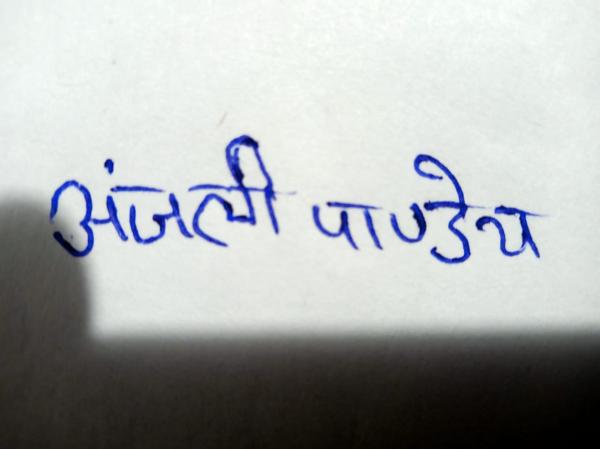 अंजली पाण्डेय